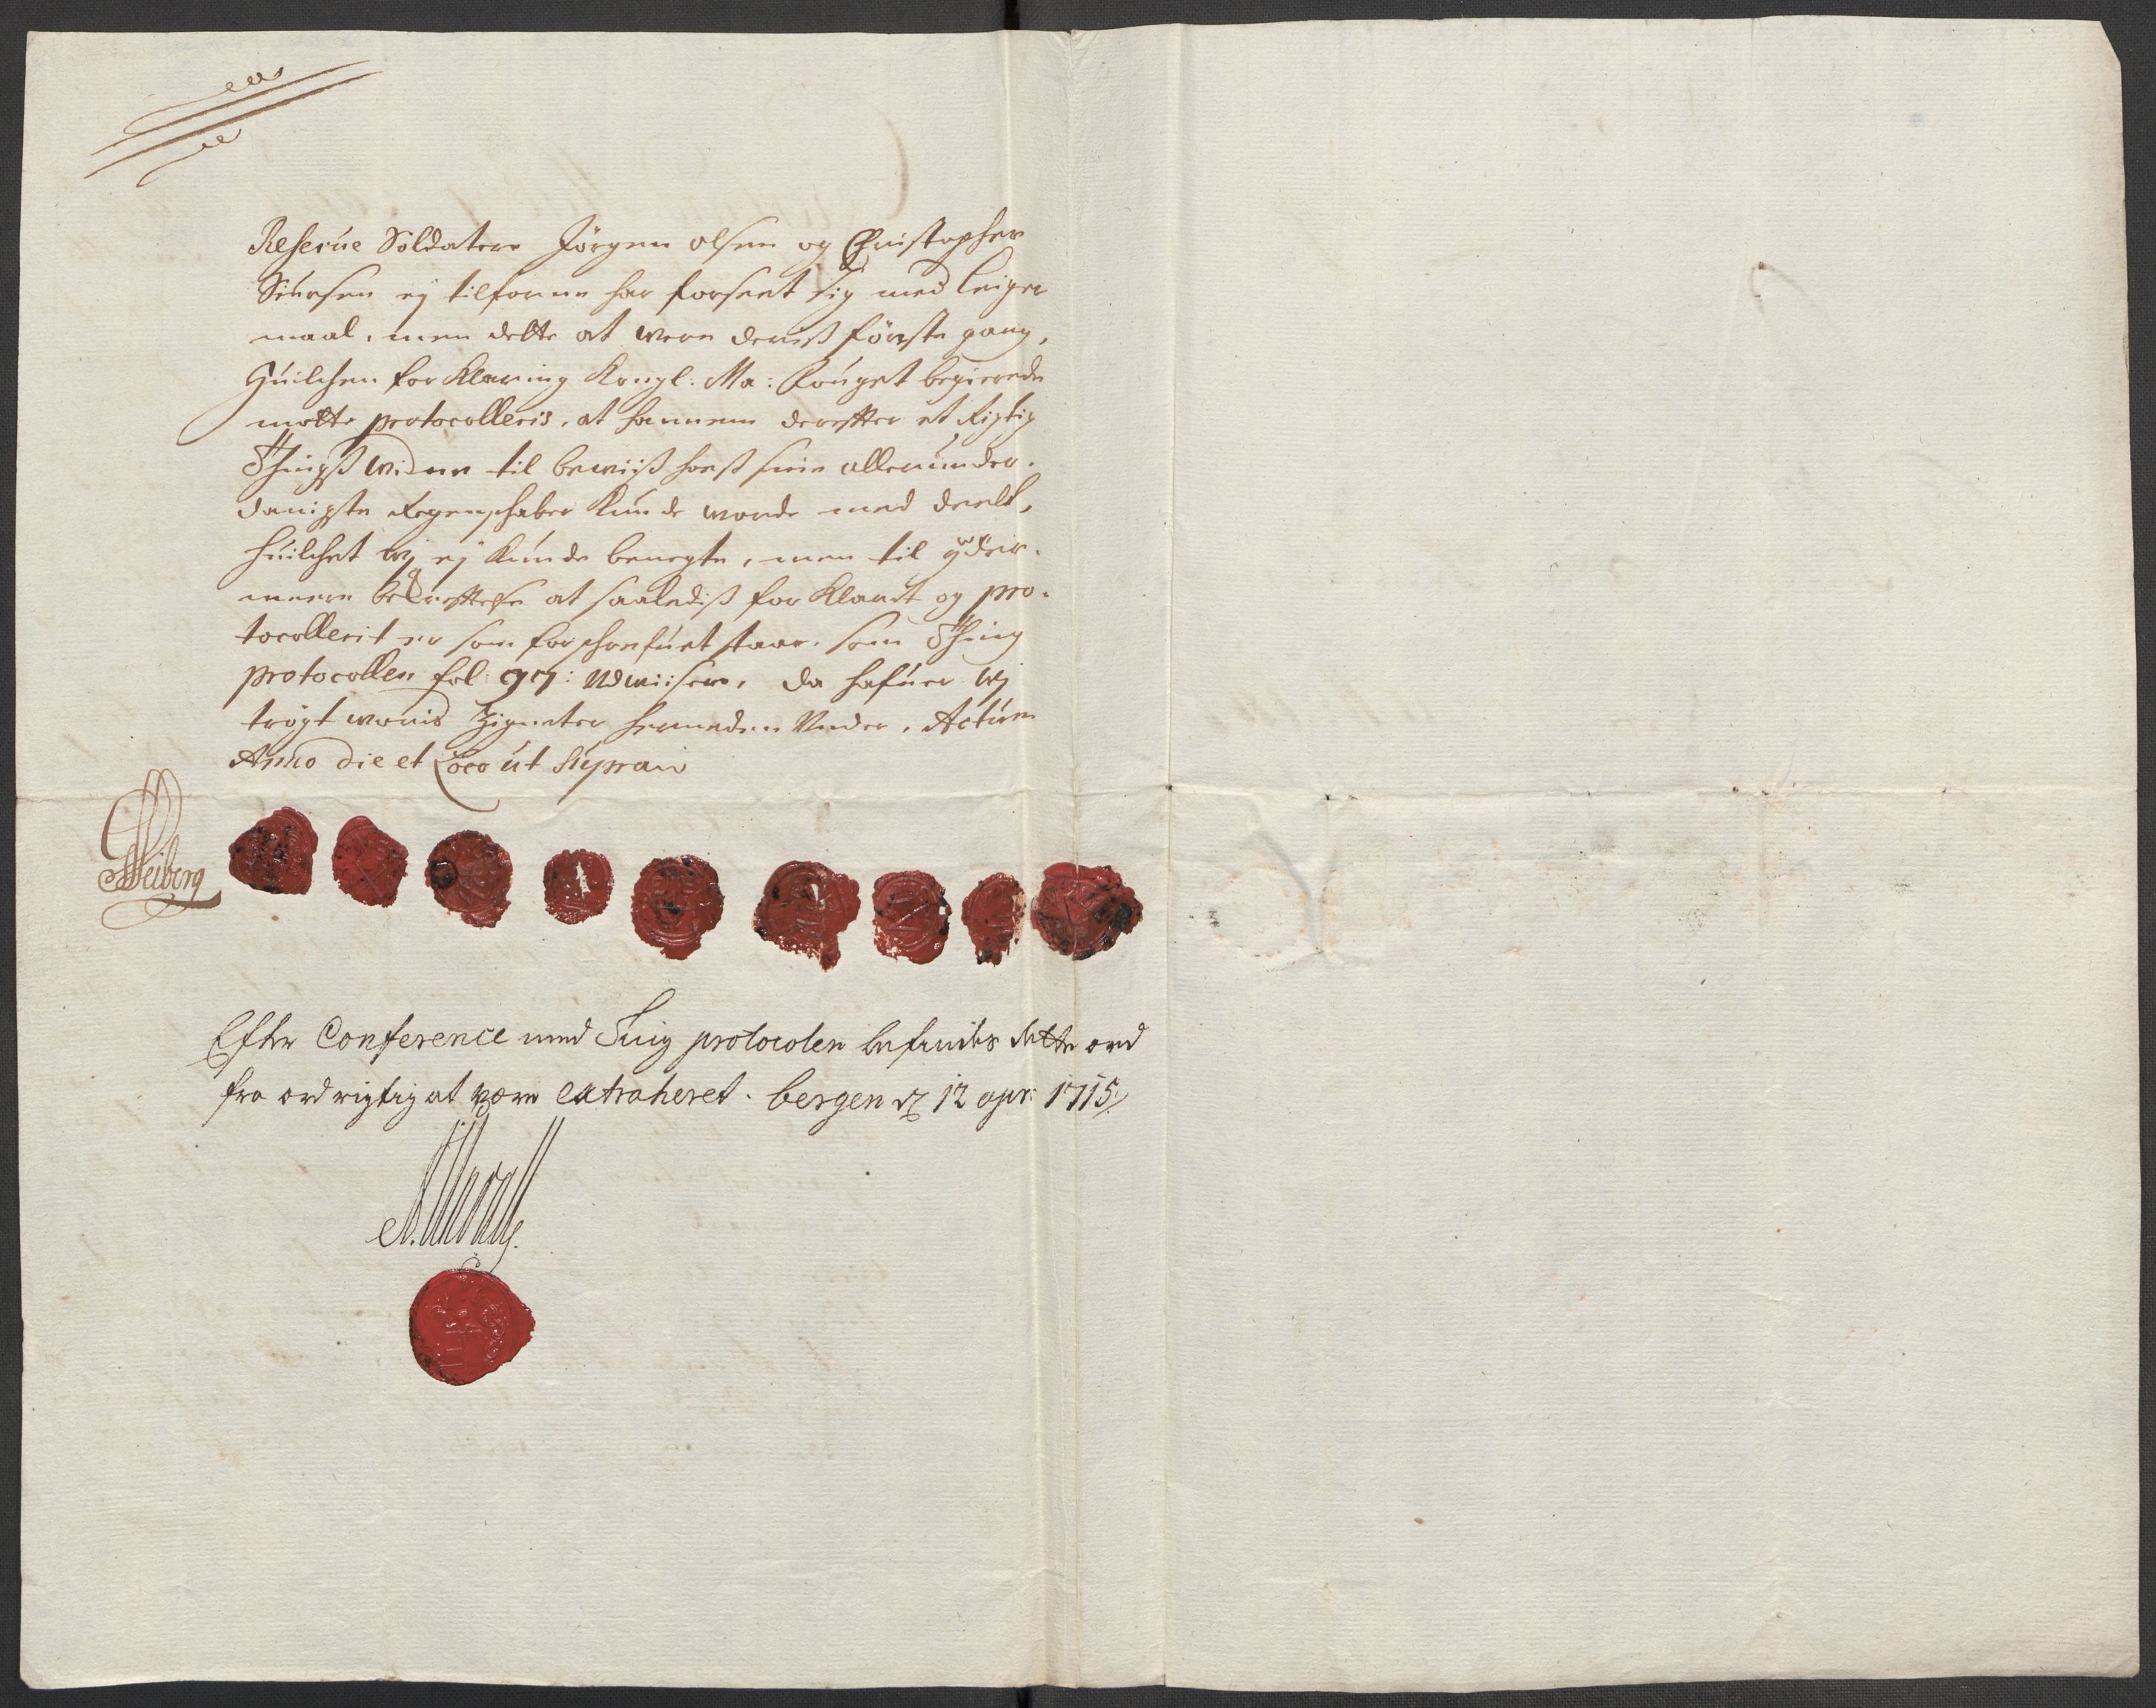 Reserue Soldatere Jörgen olsen og Christopher
Siursen ej tilforne har forseet sig med leiger
maal, men dette at were deriß förste gang,
Huilchen forklaring Kongl: Ma: fouget begierede
motte protocolleris, at hannem derefter et Rigtig
Thingß widne til beviiß hoeß sine allerunder-
danigste Regenschaber kunde worde med deelt,
huilchet wj ej kunde benegte, men til yder-
meere bekreftelse at saalediß forklaret og pro-
tocollerit er som forschrefuet staar, som Thing
protocollen fol: 97: Udwiiser, da hafuer wj
trögt woris Zigneter hermeden Under, Actum
Anno die et Loco ut Supra
Heiberg
Efter Conference med Ting protocolen befindes dette ord
fra ord rigtig at være extraheret. bergen d 12 apr: 1715